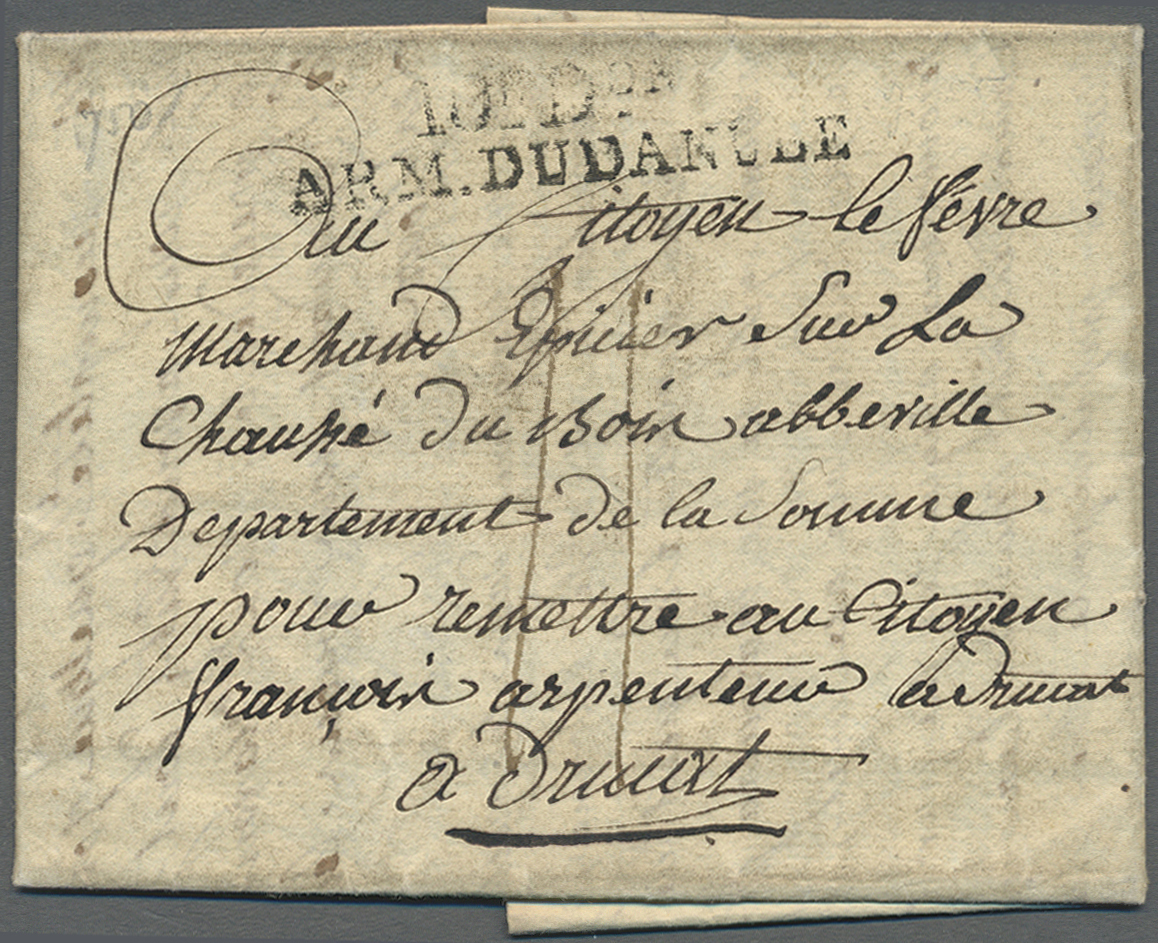 10E Don
ARM. DU DANUBE
Au Citoyen le févre
Marchand Epicier Sur La
Chaussé du Bois abbeville
Departement de la Somme
pour remettre au Citoyen
françois arpenteur a Drucat
a Drucat